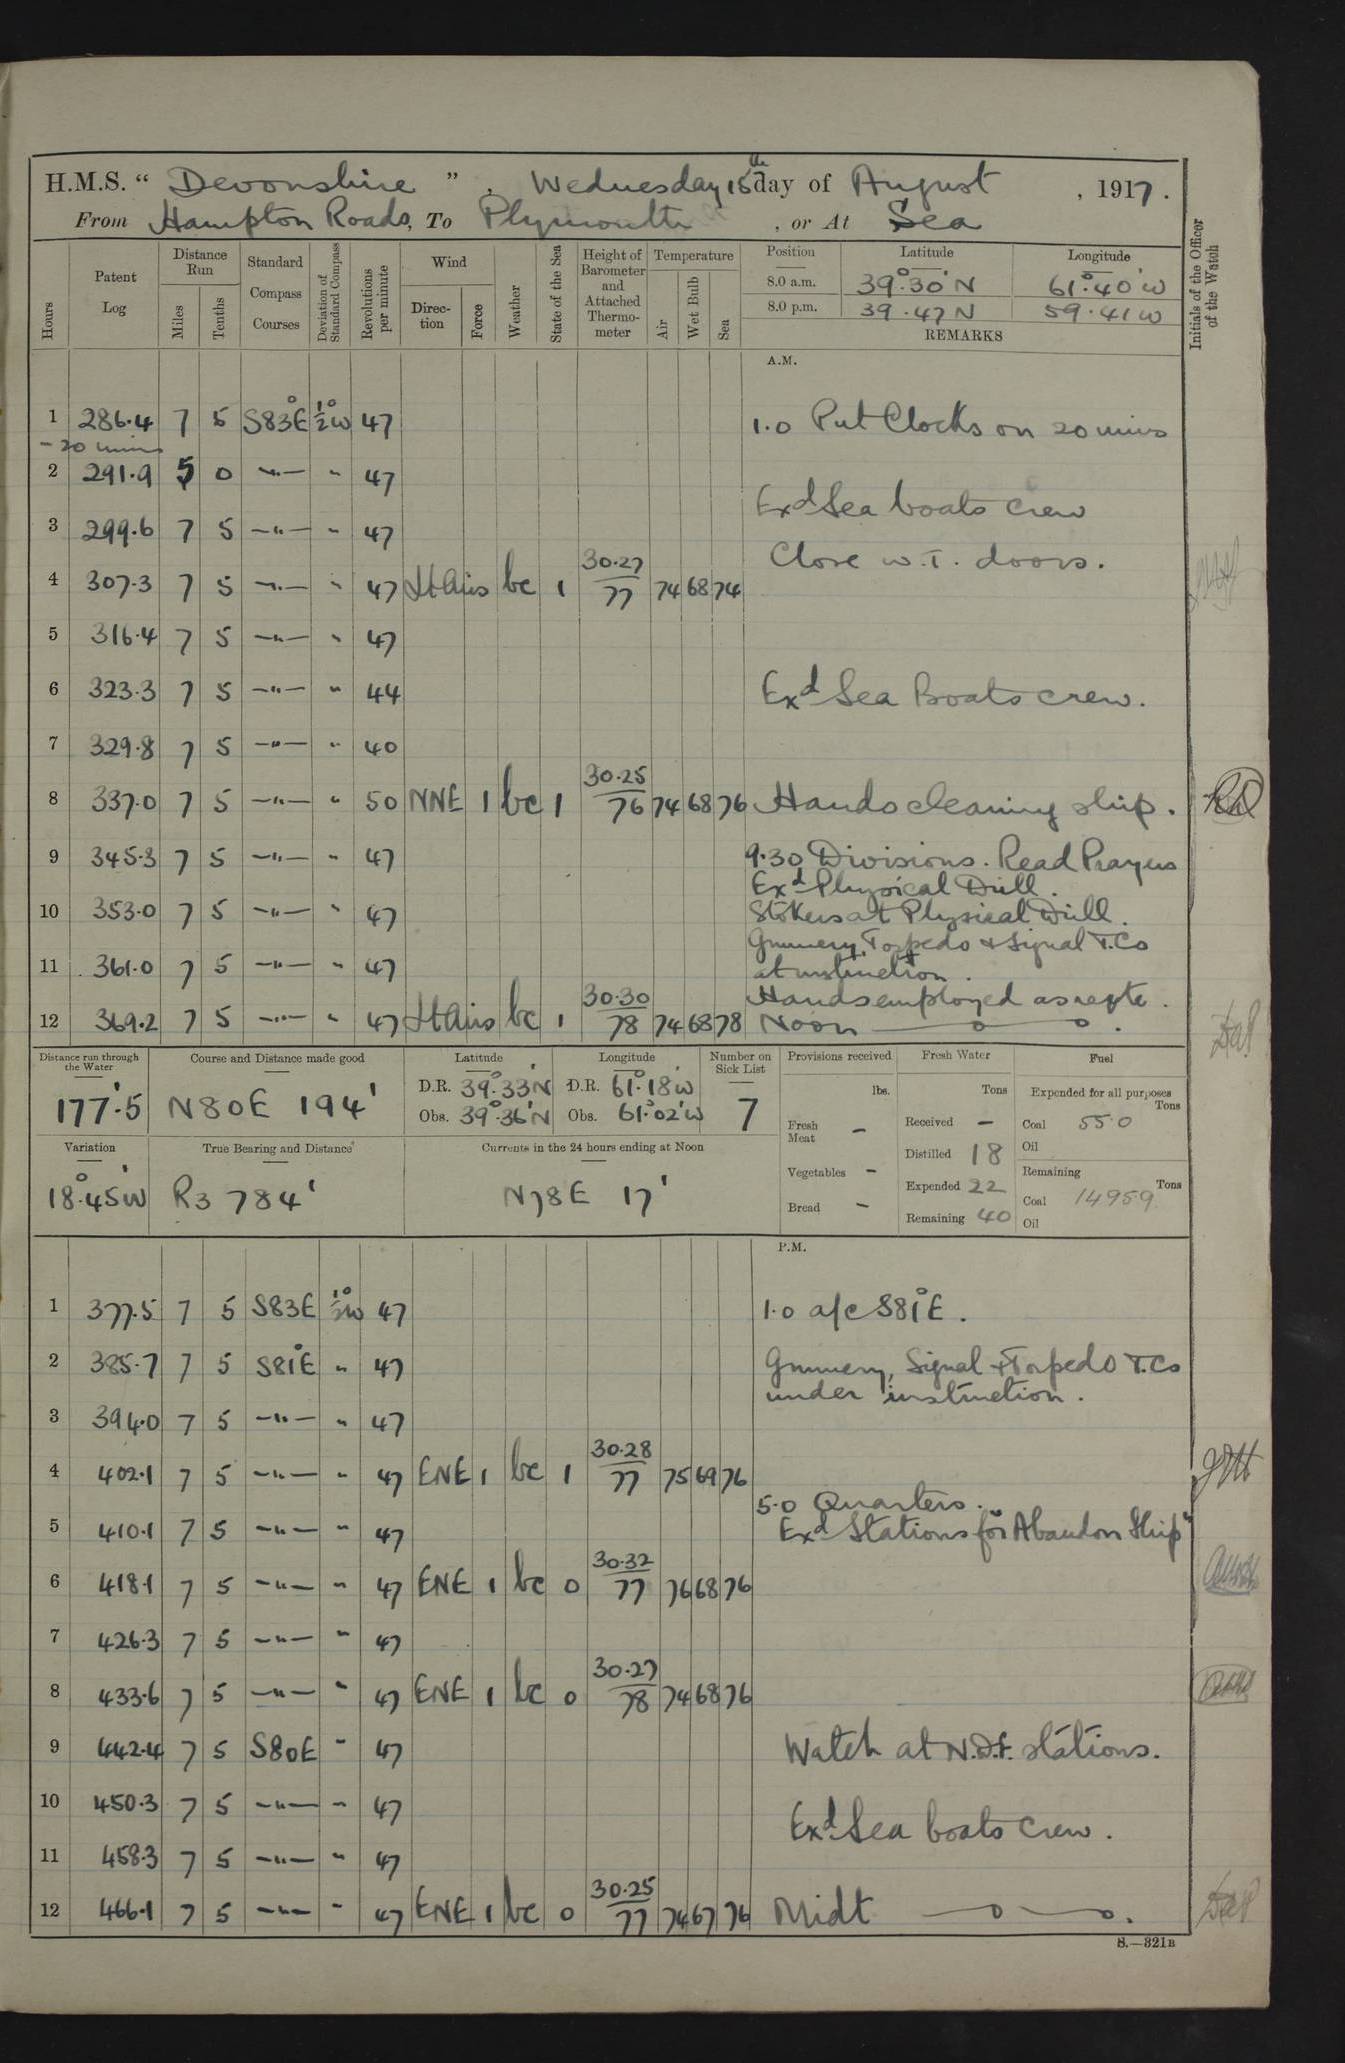 H.M.S. " Devonshire " , Wednesday 15th day of August , 1917.
From Hampton Roads, To Plymouth , or At Sea
Hours
Patent Log
Distance Run
Miles
Tenths
Standard Compass Courses
Deviation of Standard Compass
Revolutions per minute
Wind
Direction
Force
Weather
State of the Sea
Height of Barometer and Attached Thermometer
Temperature
Air
Wet Bulb
Sea
Position Latitude Longitude
8.0 a.m. 39°.30'N 61°.40'W
8.0 p.m. 39.47N 59.41W
REMARKS
Initials of the Officer of the Watch
A.M.
1 286.4 7 5 S83°E ½°W 47 1.0 Put Clocks on 20 mins
-20 mins
2 291.9 5 0 —"— " 47
Exd Sea boats crew
3 299.6 7 5 —"— " 47
Close W.T. doors.
4 307.3 7 5 —"— " 47 Lt Airs bc 1 30.27/77 74 68 74
5 316.4 7 5 —"— " 47
6 323.3 7 5 —"— " 44 Exd Sea Boats crew.
7 329.8 7 5 —"— " 40
8 337.0 7 5 —"— " 50 NNE 1 bc 1 30.25/76 74 68 76 Hands cleaning ship.
9 345.3 7 5 —"— " 47 9.30 Divisions. Read Prayers
Exd Physical Drill.
10 353.0 7 5 —"— " 47 Stokers at Physical Drill.
Gunnery, Torpedo & Signal T.Cs
11 361.0 7 5 —"— " 47 at instruction.
Hands employed as reqte.
12 369.2 7 5 —"— " 47 Lt Airs bc 1 30.30/78 74 68 78 Noon
Distance run through the Water
177'.5
Course and Distance made good
N80E 194'
Latitude Longitude
D.R. 39°.33'N D.R. 61°.18'W
Obs. 39°.36'N Obs. 61°.02'W
Number on Sick List
7
Provisions received
lbs.
Fresh Meat -
Vegetables -
Bread -
Fresh Water
Tons
Received -
Distilled 18
Expended 22
Remaining 40
Fuel
Expended for all purposes
Tons
Coal 550
Oil
Remaining
Tons
Coal 14959
Oil
Variation
18°.45'W
True Bearing and Distance
R3 784'
Currents in the 24 hours ending at Noon
N78E 17'
P.M.
1 377.5 7 5 S83E ½°W 47 1.0 a/c S81°E.
2 385.7 7 5 S81°E " 47 Gunnery, Signal & Torpedo T.Cs
under instruction.
3 394.0 7 5 —"— " 47
4 402.1 7 5 —"— " 47 ENE 1 bc 1 30.28/77 75 69 76
5.0 Quarters.
5 410.1 7 5 —"— " 47 Exd Stations for "Abandon Ship"
6 418.1 7 5 —"— " 47 ENE 1 bc 0 30.32/77 76 68 76
7 426.3 7 5 —"— " 47
8 433.6 7 5 —"— " 47 ENE 1 bc 0 30.27/78 74 68 76
9 442.4 7 5 S80E " 47 Watch at N.D.f. stations.
10 450.3 7 5 —"— " 47
Exd Sea boats crew.
11 458.3 7 5 —"— " 47
12 466.1 7 5 —"— " 47 ENE 1 bc 0 30.25/77 74 67 76 Midt
S.—321B